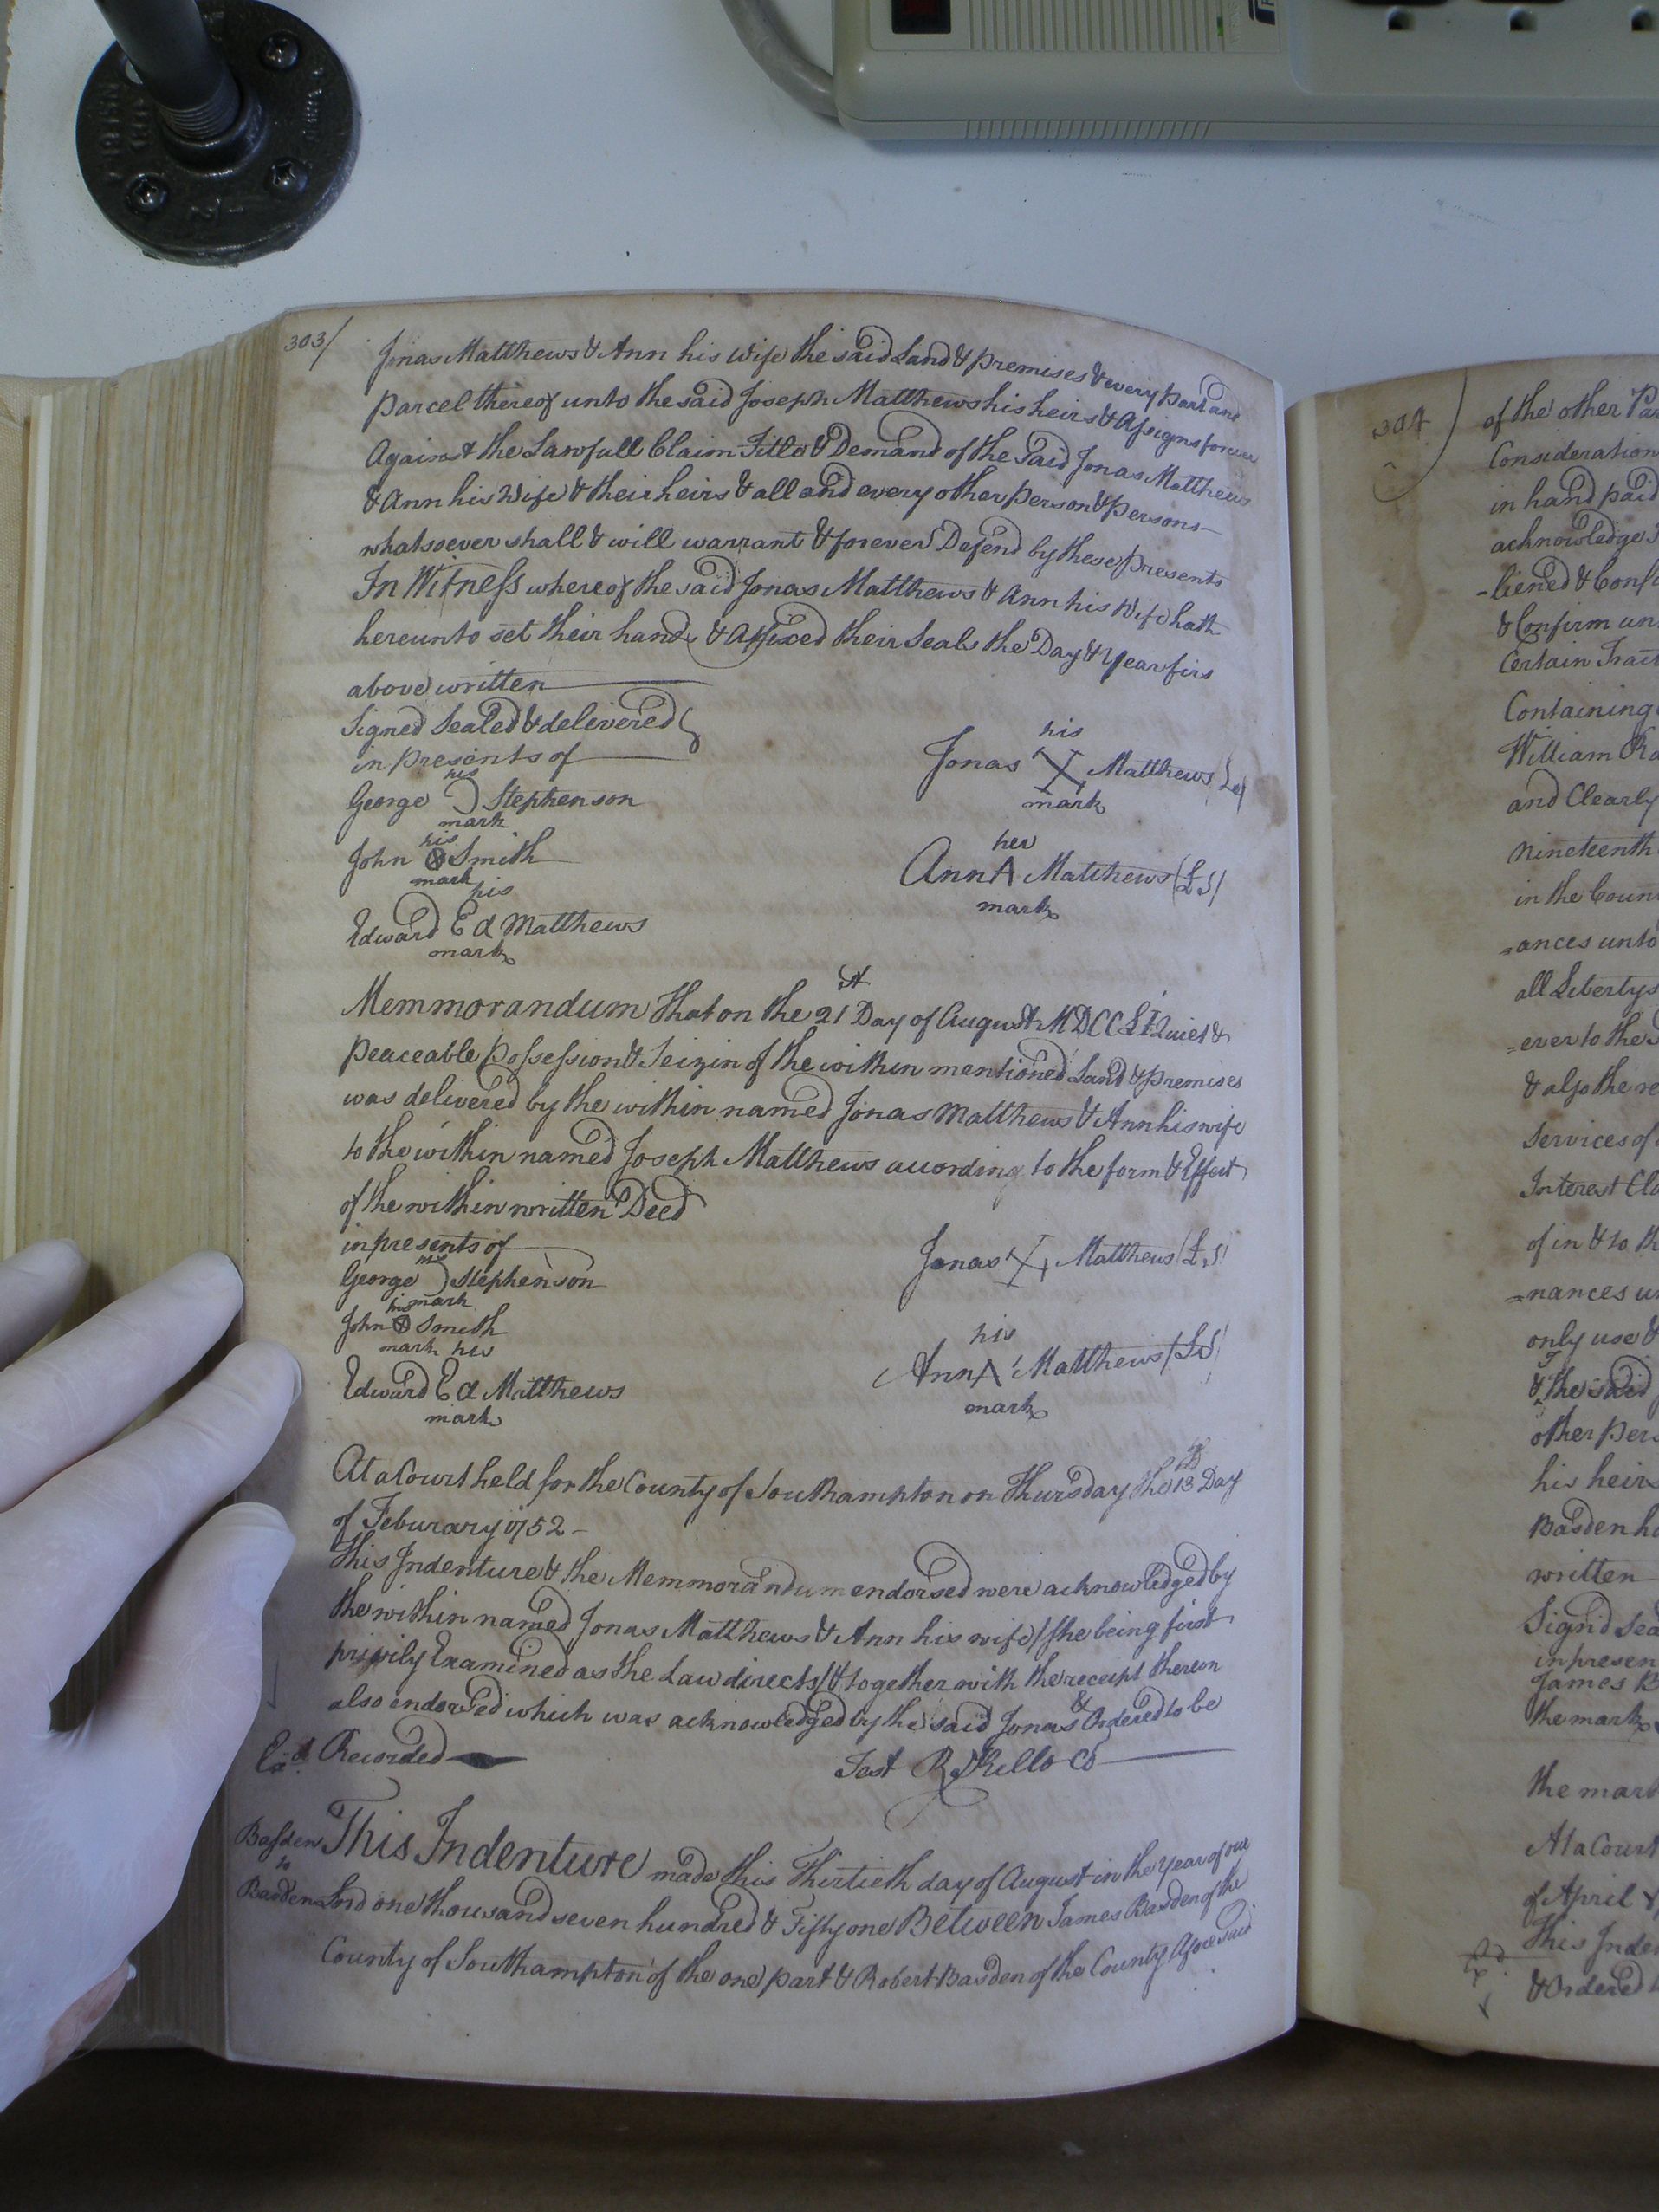 303/
Jonas Matthews & Ann his Wife the said Land & premises & every part and
parcel thereof unto the said Joseph Matthews his heirs & Assigns forever
Against the Lawfull Claim Title & Demand of the said Jonas Matthews
& Ann his Wife & their heirs & all and every other person & persons
whatsoever shall & will warrant & forever Defend by these presents
In Witness whereof the said Jonas Matthews & Ann his Wife hath
hereunto set their hands & Affixed their Seals the Day & Year firs
above written
Signed Sealed & delivered
in presents of
his
George Stephenson
mark
his
John Smith
mark
his
Edward Ed Matthews
mark
his
Jonas X Matthews
mark
her
Ann A Matthews (LS)
mark
Memmorandum that on the 21st Day of August MDCCLI Quiet &
peaceable possession & Seizin of the within mentioned Land & premises
was delivered by the within named Jonas Matthews & Ann his wife
to the within named Joseph Matthews according to the form & Effect
of the within written Deed
in presents of
his
George Stephenson
mark
his
John Smith
mark his
Edward Ed Matthews
mark
Jonas X Matthews (LS)
his
Ann A Matthews (LS)
mark
At a Court held for the County of Southampton on Thursday the 13th Day
of Feburary 1752
This Indenture & the Memmorandum endorsed were acknowledged by
the within named Jonas Matthews & Ann his wife (she being first
privily Examined as the Law directs) & together with the receipt thereon
also endorsed which was acknowledged by the said Jonas & Ordered to be
Exd. Recorded
Test R Kello CC
Basden
to
Basden
This Indenture made this Thirtieth day of August in the Year of our
Lord one thousand seven hundred & Fifty one Between James Basden of the
County of Southampton of the one part & Robert Basden of the County Aforesaid
304
of the other
Consideration
in hand paid
acknowledge
& Confirm
Certain
Containing
William
and Clearly
Nineteenth
in the
=ances unto
all Libertys
=ever to the
& also the
Services of
Interest
of in & to
=nances
only use &
& the said
other
his heirs
Basden
written
Signd
in
James
the mark
the mark
At a Court
of April
This
& Ordered